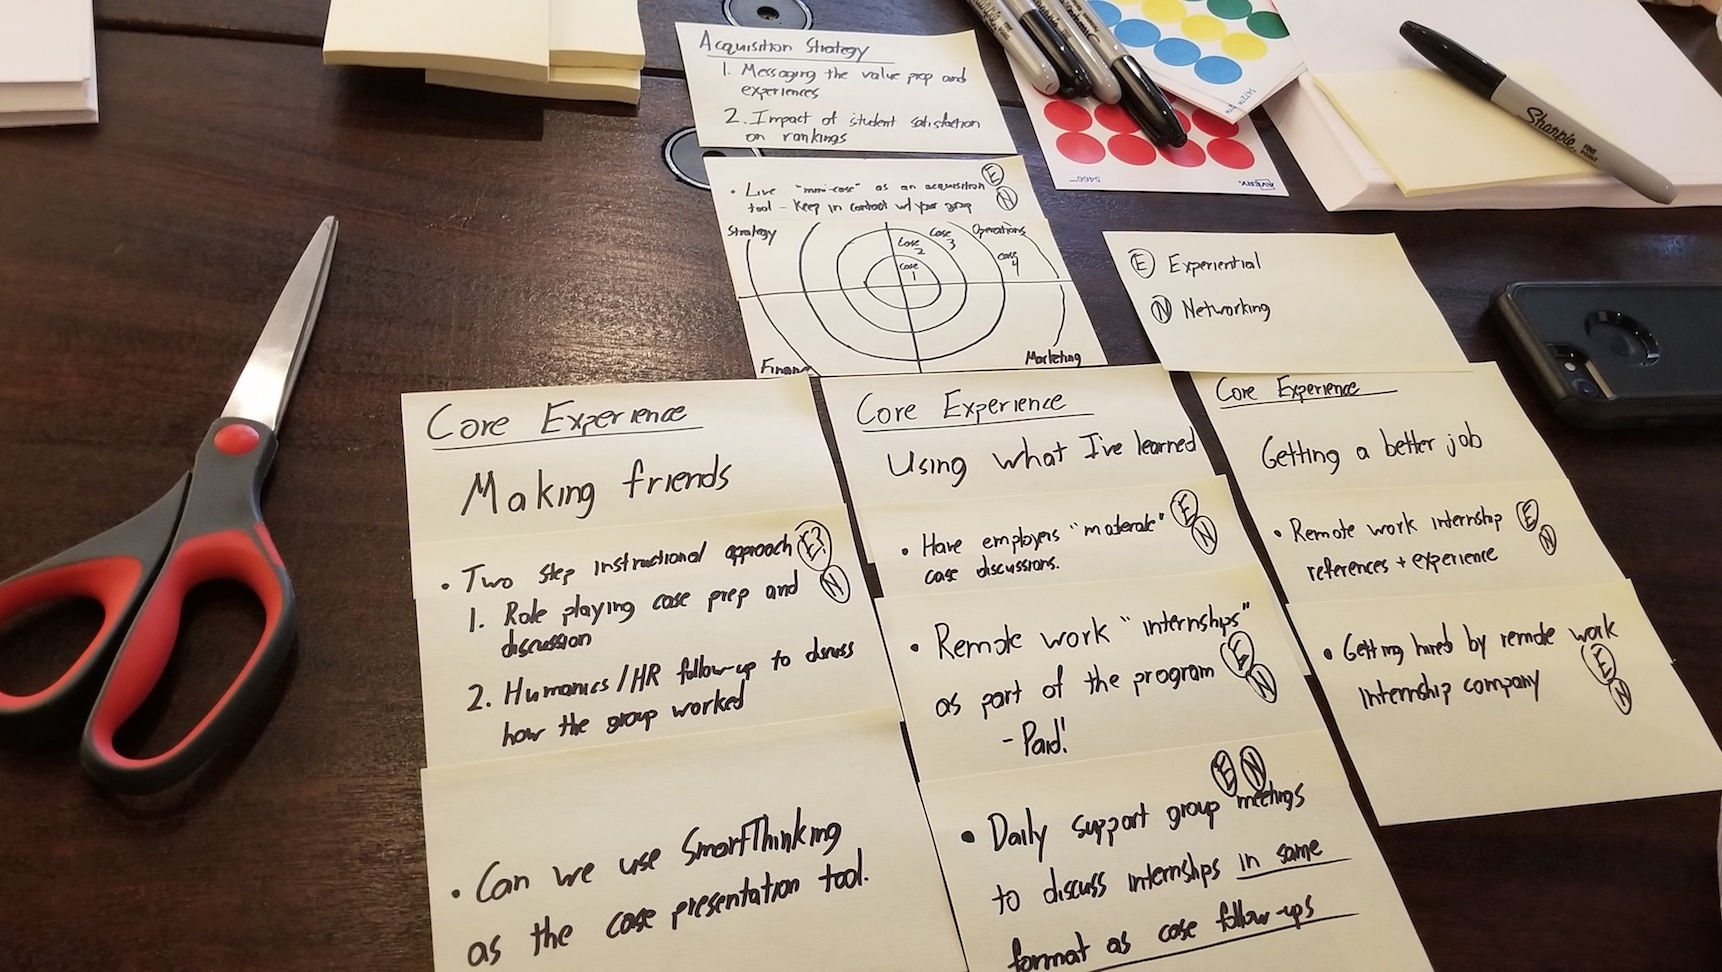 Acquisition Strategy
1. Messaging the value prop and
experiences
2. Impact of student satisfaction
on rankings
• Live "mini-case" as an acquisition E
tool - Keep in contact w/ your group N
Strategy
Case 3
Operations
Case 2
Case 4
Case 1
Finance
Marketing
E Experiential
N Networking
Core Experience
Making friends
• Two step instructional approach E?
1. Role playing case prep and N
discussion
2. Humanics/HR follow-up to discuss
how the group worked
• Can we use SmartThinking
as the case presentation tool.
Core Experience
Using what I've learned
• Have employers "moderate" E
case discussions. N
• Remote work "internships"
as part of the program E N
- Paid!
E N
• Daily support group meetings
to discuss internships in same
format as case follow-ups
Core Experience
Getting a better job
• Remote work internship E
references + experience N
• Getting hired by remote work
internship company E N
Sharpie
FINE POINT
AVERY
5466
5472